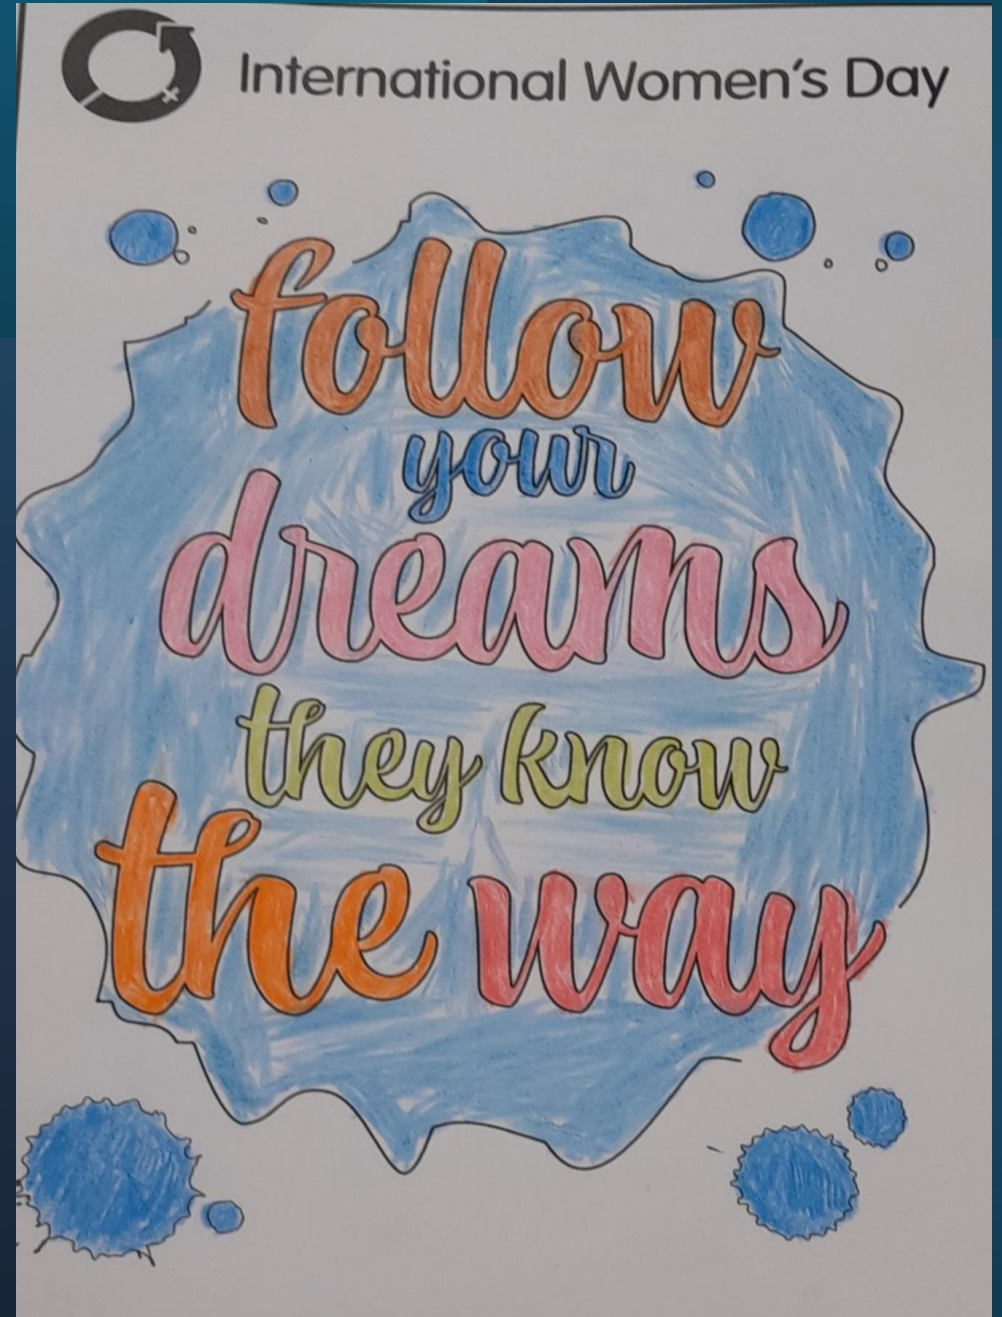 International Women's Day
follow
your
dreams
they know
the way